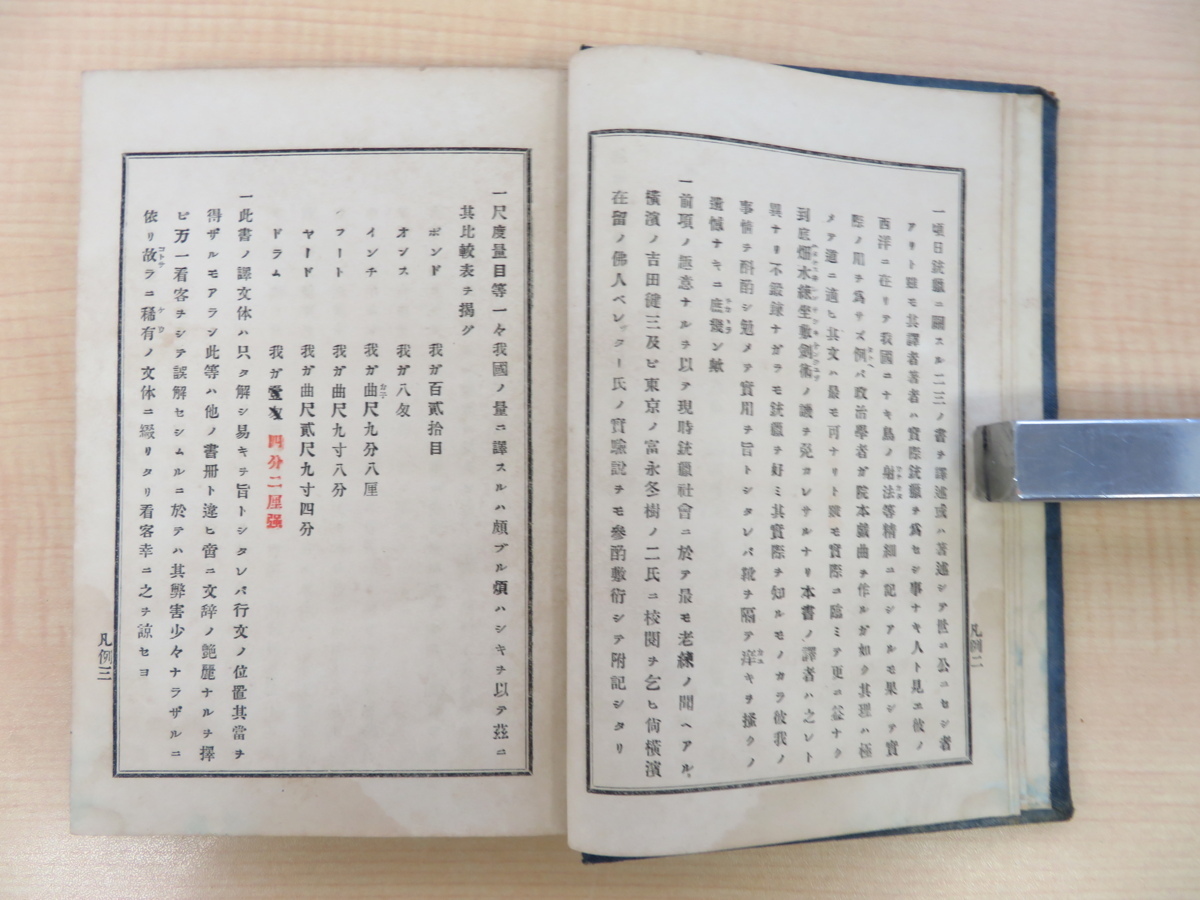 一頃日銃獵ニ關スル二三ノ書ヲ譯述或ハ著述シテ世ニ公ニセシ者
アリト雖モ其譯者著者ハ實際銃獵ヲ爲セシ事ナキ人ト見エ彼ノ
西洋ニ在リテ我國ニナキ鳥ノ射法等精細ニ記シアルモ果シテ實
際ノ用ヲ爲サズ例バ政治學者ガ院本戯曲ヲ作ルガ如ク其理ハ極
メテ道ニ適ヒ其文ハ最モ可ナリト雖モ實際ニ臨ミテ更ニ益ナク
到底畑水練坐敷劔術ノ譏ヲ免カレサルナリ本書ノ譯者ハ之レト
異ナリ不鍛錬ナガラモ銃獵ヲ好ミ其實際ヲ知ルモノカラ彼我ノ
事情ヲ酙酌シ勉メテ實用ヲ旨トシタレバ靴ヲ隔テ痒キヲ搔クノ
遺憾ナキニ庶幾ン歟
一前項ノ趣意ナルヲ以テ現時銃獵社會ニ於テ最モ老練ノ聞ヘアル
横濱ノ吉田健三及ビ東京ノ富永冬樹ノ二氏ニ校閲ヲ乞ヒ尙横濱
在留ノ佛人ベレッター氏ノ實驗説ヲモ參酌敷術シテ附記シタリ
凡例二
一尺度量目等一々我國ノ量ニ譯スルハ頗ブル煩ハシキヲ以テ茲ニ
其比較表ヲ揭グ
ポンド 我ガ百貳拾目
オンス 我ガ八匁
インチ 我ガ曲尺九分八厘
フート 我ガ曲尺九寸八分
ヤード 我ガ曲尺貳尺九寸四分
ドラム 我ガ 四分二厘强
一此書ノ譯文体ハ只タ解シ易キヲ旨トシタレバ行文ノ位置其當ヲ
得ザルモアラン此等ハ他ノ書册ト違ヒ啻ニ文辞ノ艶麗ナルヲ擇
ビ万一看客ヲシテ誤解セシムルニ於テハ其弊害少々ナラザルニ
依リ故ラニ稀有ノ文体ニ綴リタリ看客幸ニ之ヲ諒セヨ
凡例三